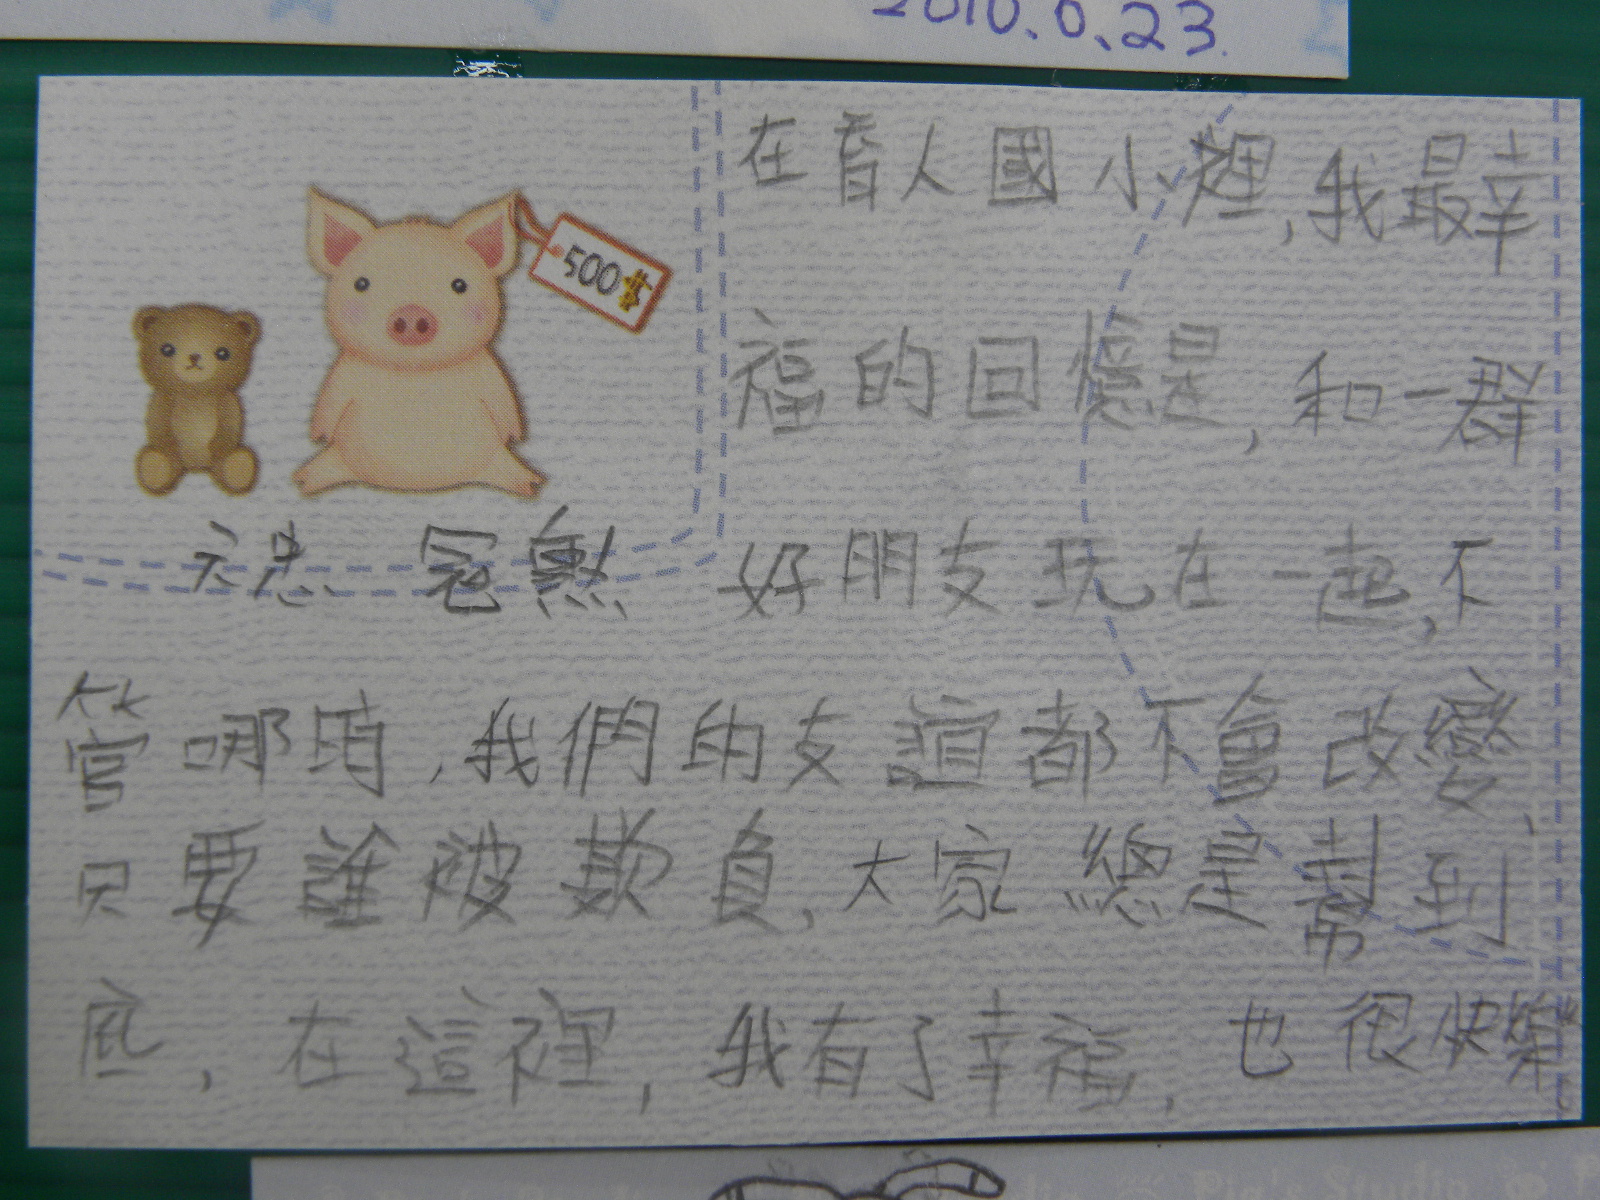 2010.6.23.
500$
在育人國小裡,我最幸
福的回憶是,和一群
好朋友玩在一起,不
管哪時,我們的友誼都不會改變,
只要誰被欺負,大家總是幫到
底,在這裡,我有了幸福,也很快樂
Pig's Studio